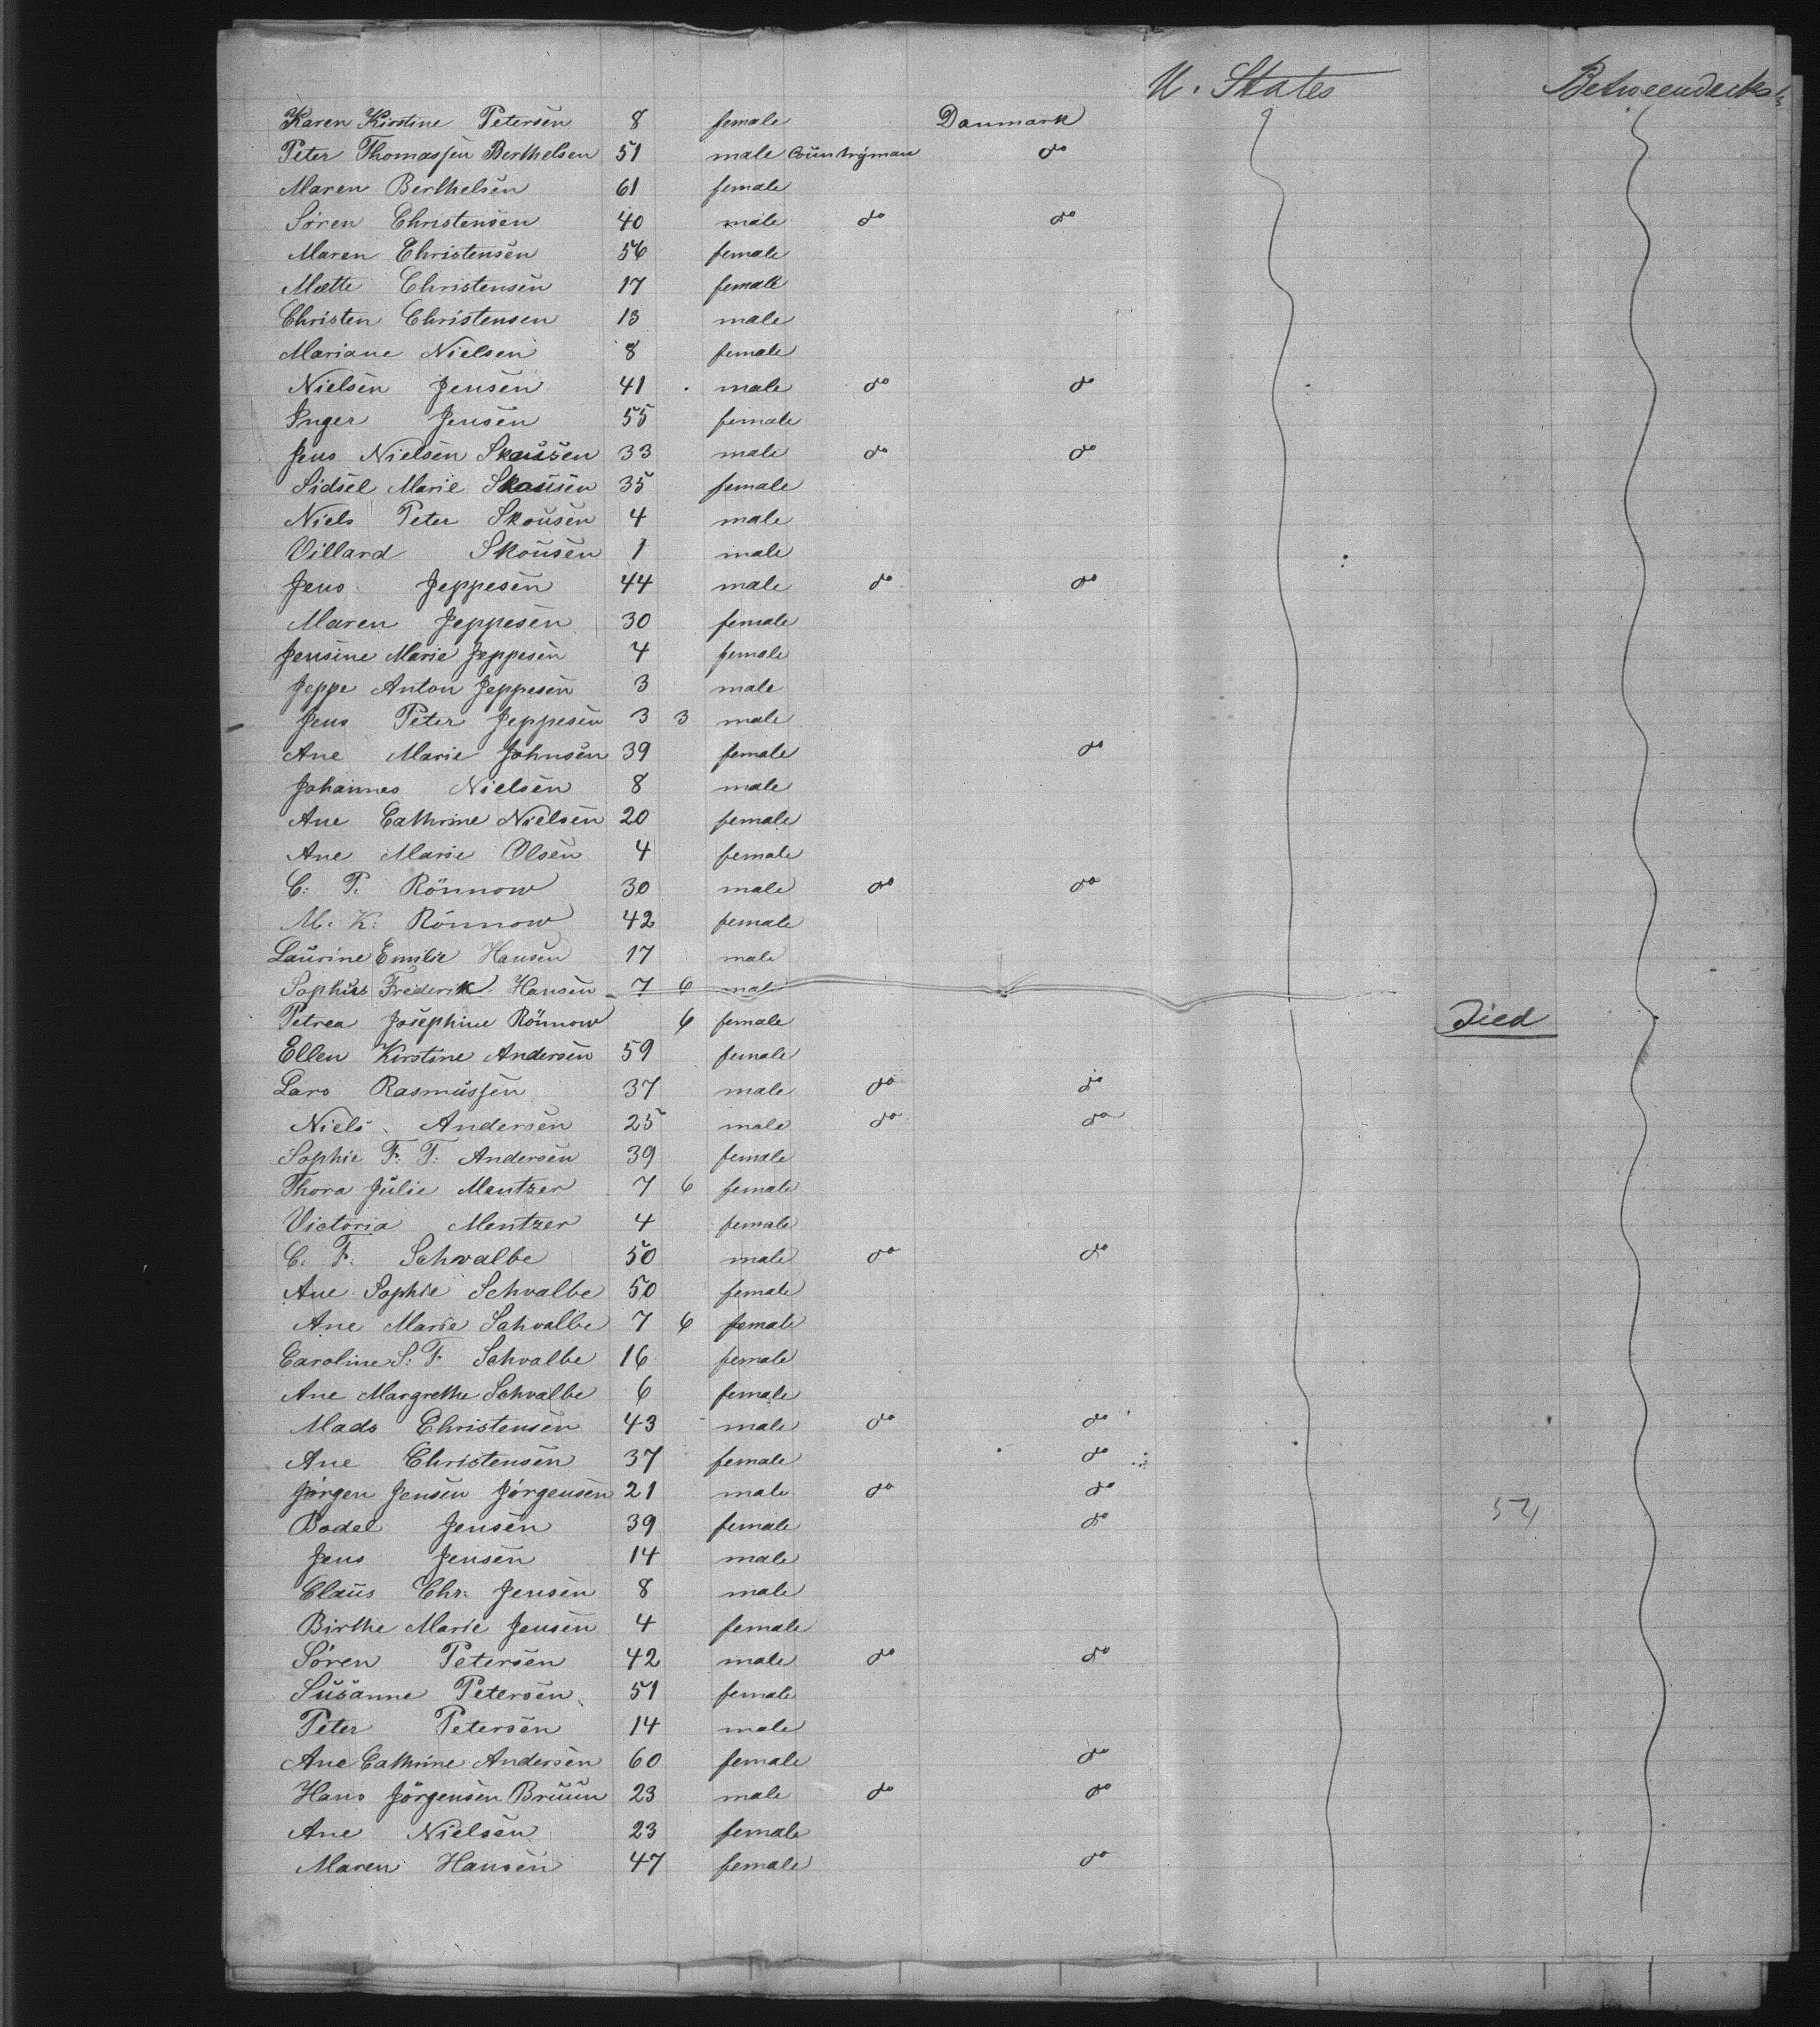 U. States Betweendecks
Karen Kirstine Petersen 8 female Danmark
Peter Thomassen Berthelsen 51 male Countryman do
Maren Berthelsen 61 female
Sören Christensen 40 male do do
Maren Christensen 56 female
Mette Christensen 17 female
Christen Christensen 13 male
Mariane Nielsen 8 female
Nielsen Jensen 41 male do do
Inger Jensen 55 female
Jens Nielsen Skousen 33 male do do
Sidsel Marie Skousen 35 female
Niels Peter Skousen 4 male
Villard Skousen 1 male
Jens Jeppesen 44 male do do
Maren Jeppesen 30 female
Jensine Marie Jeppesen 4 female
Jeppe Anton Jeppesen 3 male
Jens Peter Jeppesen 3 3 male
Ane Marie Johnsen 39 female do
Johannes Nielsen 8 male
Ane Cathrine Nielsen 20 female
Ane Marie Olsen 4 female
C: P. Rönnow 30 male do do
M. K: Rönnow 42 female
Laurine Emilie Hansen 17 male
Sophus Frederik Hansen 7 6 male
Petrea Josephine Rönnow 6 female Died
Ellen Kirstine Andersen 59 female
Lars Rasmussen 37 male do do
Niels Andersen 25 male do do
Sophie F: T: Andersen 39 female
Thora Julie Mentzer 7 6 female
Victoria Mentzer 4 female
C. F. Schvalbe 50 male do do
Ane Sophie Schvalbe 50 female
Ane Marie Schvalbe 7 6 female
Caroline S: F. Schvalbe 16 female
Ane Margrethe Schvalbe 6 female
Mads Christensen 43 male do do
Ane Christensen 37 female do
Jörgen Jensen Jörgensen 21 male do do
Bodel Jensen 39 female do
Jens Jensen 14 male
Claus Chr: Jensen 8 male
Birthe Marie Jensen 4 female
Sören Petersen 42 male do do
Susanne Petersen 51 female
Peter Petersen 14 male
Ane Cathrine Andersen 60 female do
Hans Jörgensen Bruun 23 male do do
Ane Nielsen 23 female
Maren Hansen 47 female do